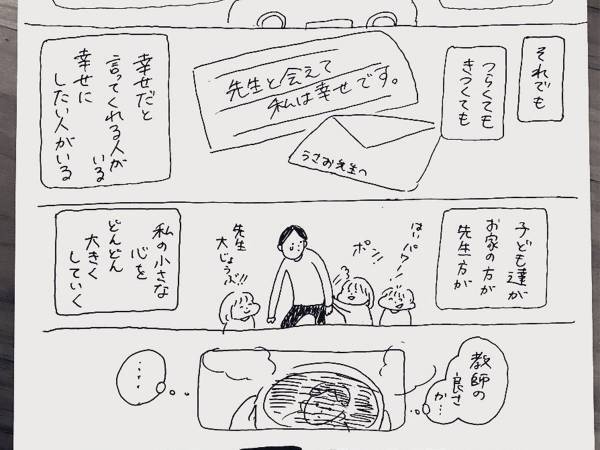 それでも
つらくても
きつくても
先生と会えて
私は幸せです。
うさお先生へ
幸せだと
言ってくれる人が
いる
幸せに
したい人がいる
子ども達が
お家の方が
先生方が
はいパワー！
ポン！
先生
大じょうぶ!!
私の小さな
心を
どんどん
大きく
していく
教師の
良さ
か…
……